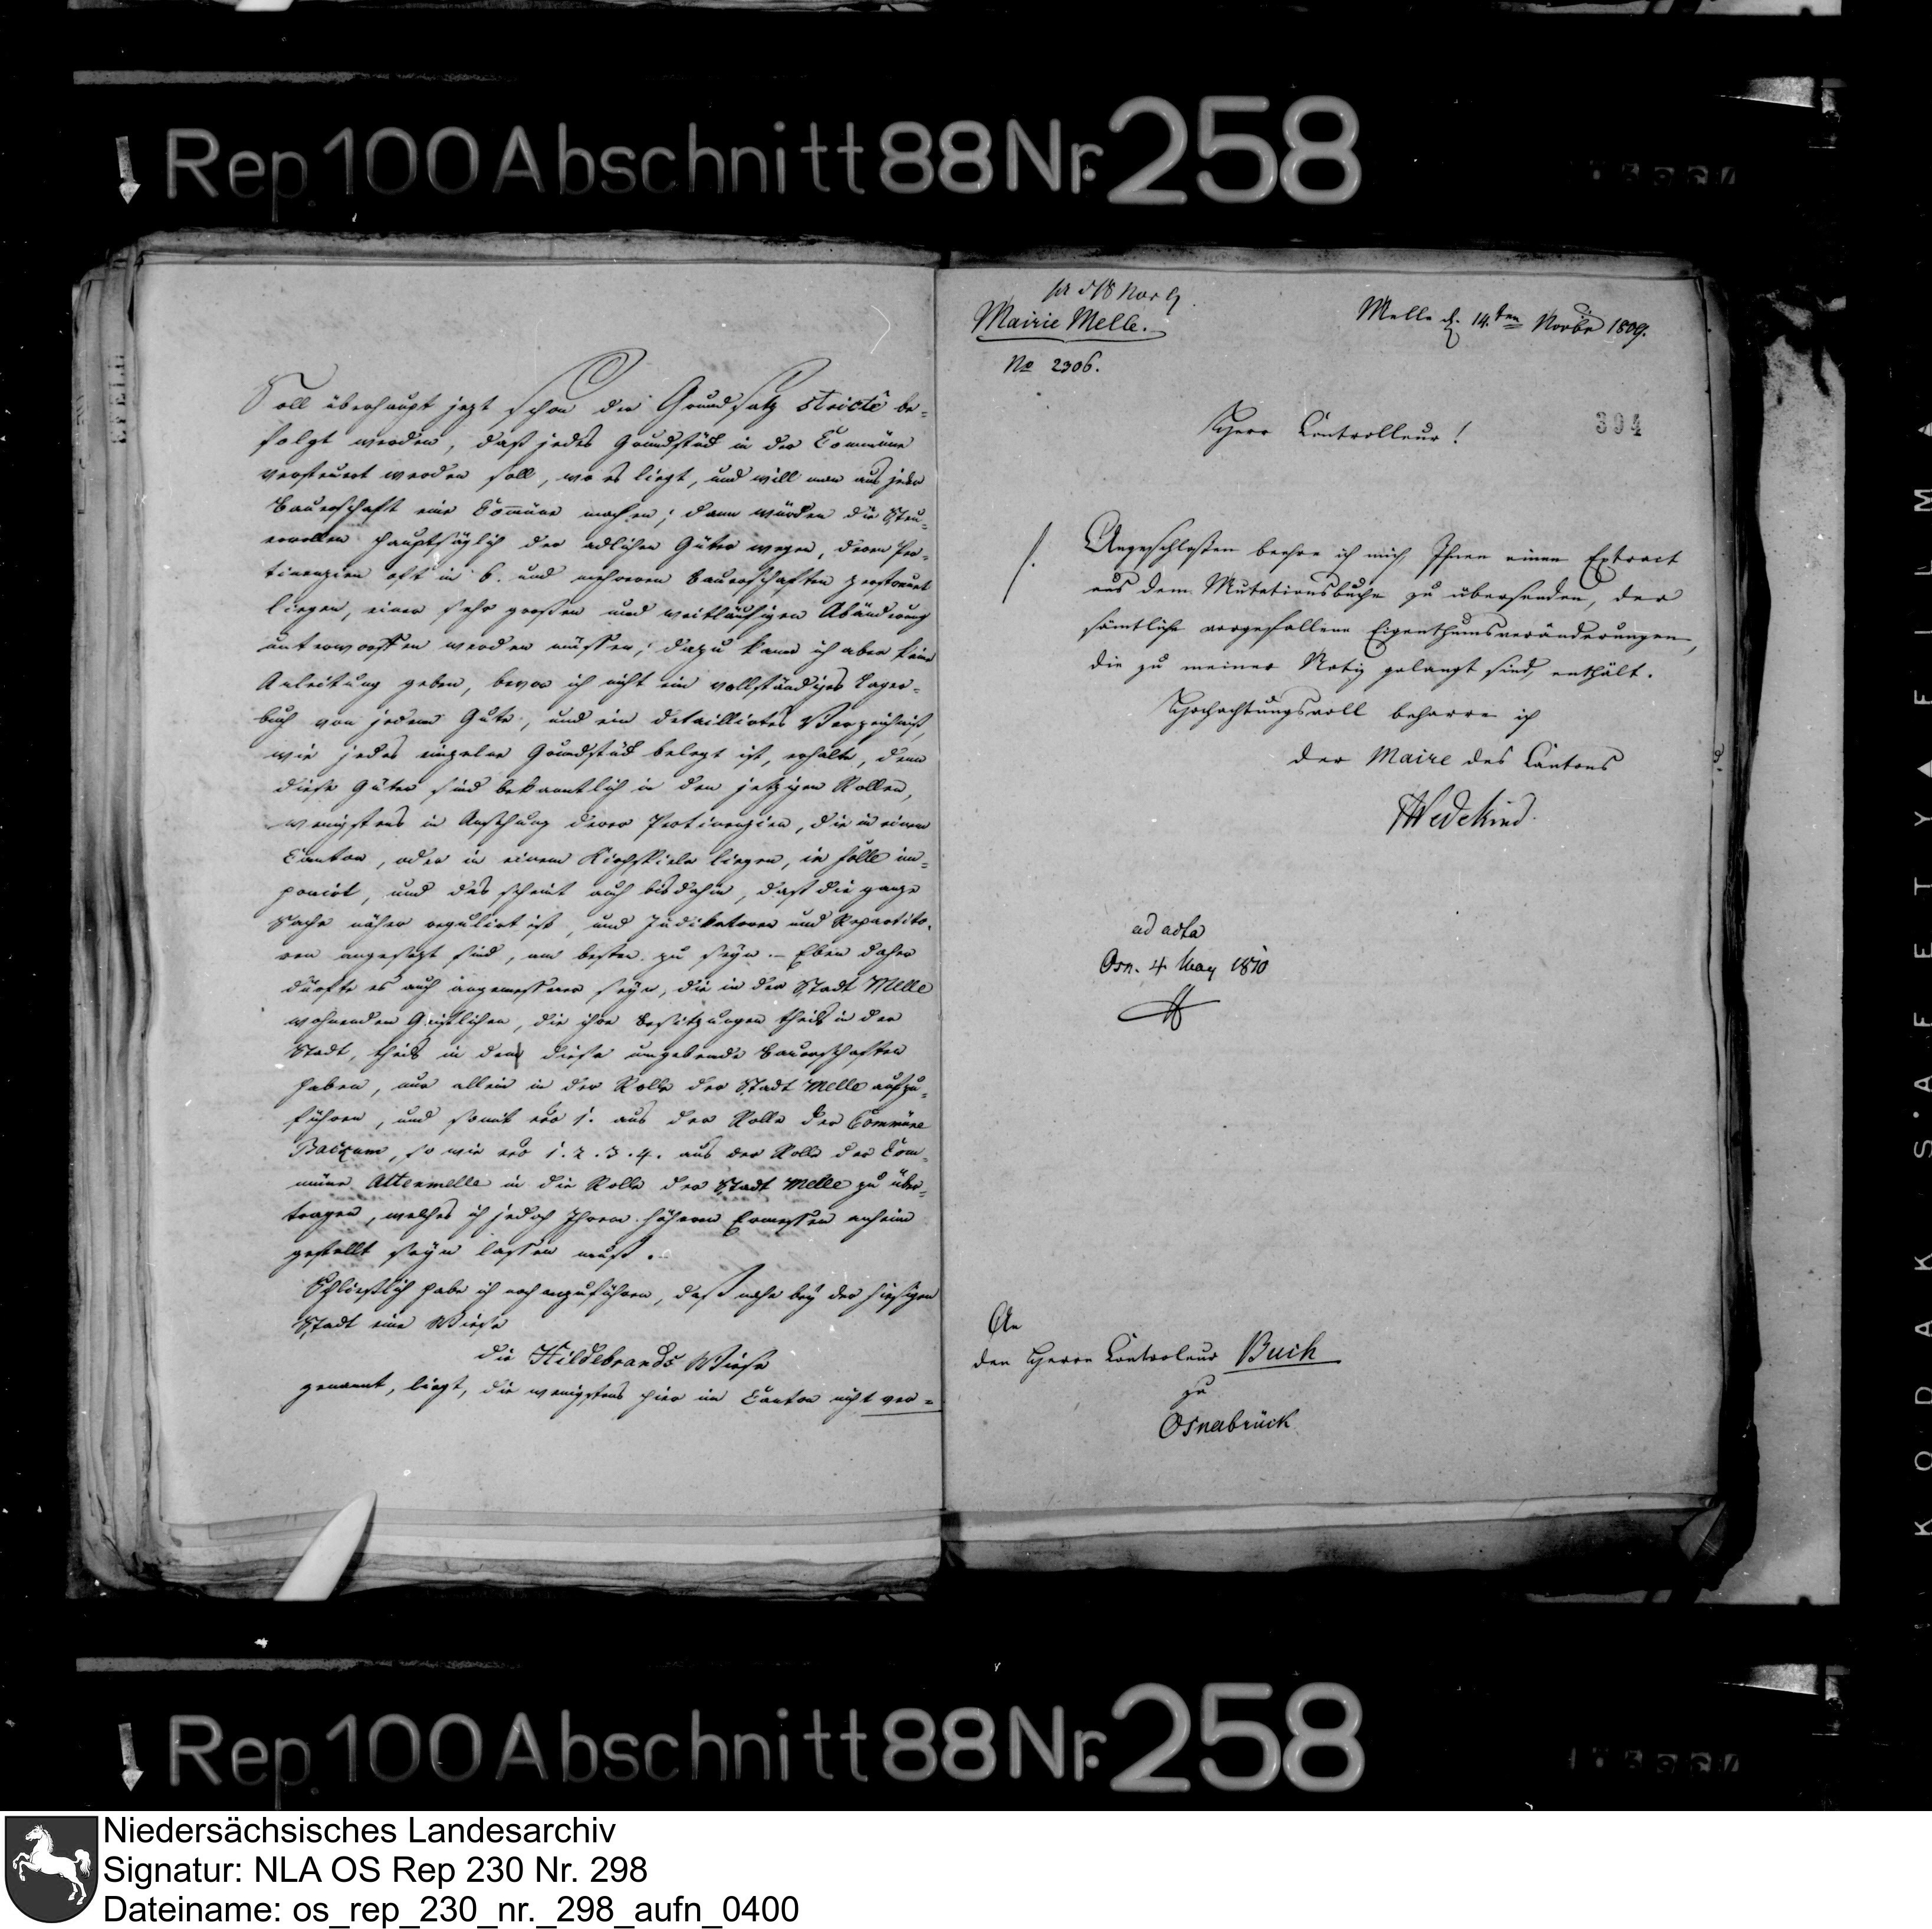 Rep 100 Abschnitt 88 Nr. 258
Soll überhaupt jezt schon der Grundsatz stricte be-
folgt werden, daß jedes Grundstück in der Commüne
versteuert werden soll, wo es liegt, und will man aus jeder
Bauerschaft eine Com̄üne machen; dann würden die Steu-
errollen hauptsäglich der adlichen Güter wegen, deren Per-
tinenzien oft in 6. und mehreren Bauerschaften zerstreuet
liegen, einer sehr großen und weitläufigen Abänderung
unterworffen werden müssen; dazu kann ich aber keine
Anleitung geben, bevor ich nicht ein vollständiges Lager-
buch von jedem Gute, und ein detaillirtes Verzeichniß,
wie jedes einzelne Grundstück belegt ist, erhalte, denn
diese Güter sind bekanntlich in den jetzigen Rollen,
wenigstens in Ansehung derer Pertinenzien, die in einem
Canton, oder in einem Kirchspiele liegen, in solle im-
ponirt, und das scheint auch bis dahin, daß die ganze
Sache näher regulirt ist, und Indikatoren und Repartito-
ren angesetzt sind, am besten zu seyn. — Eben daher
dürfte es auch angemessener seyn, die in der Stadt Melle
wohnenden Geistlichen, die ihre Besitzungen theils in der
Stadt, theils in den diese umgebende Bauerschaften
haben, nur allein in der Rolle der Stadt Melle aufzu-
führen, und somit nro 1. aus der Rolle der Commüne
Backum, so wie nro 1. 2. 3. 4. aus der Rolle der Com-
müne Altenmelle in die Rolle der Stadt Melle zu über-
tragen, welches ich jedoch Ihrem höhern Ermessen anheim
gestellt seyn lassen muß.
Schließlich habe ich noch anzuführen, daß nahe bey der hiesigen
Stadt eine Wiese
die Hildebrands Wiese
genannt, liegt, die wenigstens hier im Canton nicht ver-
pr d 18 Nov 9.
Mairie Melle.
No 2306.
Melle d. 14.ten Novbr 1809.
394
Herr Controlleur!
Angeschloßen beehre ich mich Ihnen einen Extract
aus dem Mutationsbuche zu übersenden, der
sämtliche vorgefallene Eigenthumsveränderungen,
die zu meiner Notiz gelangt sind, enthält.
Hochachtungsvoll beharre ich
der Maire des Cantons
Wedekind.
ad acta
Osn. 4 May 1810
An
den Herrn Controleur Buch
zu
Osnabrück
Rep 100 Abschnitt 88 Nr. 258
KODAK SAFETY FILM
Niedersächsisches Landesarchiv
Signatur: NLA OS Rep 230 Nr. 298
Dateiname: os_rep_230_nr._298_aufn_0400